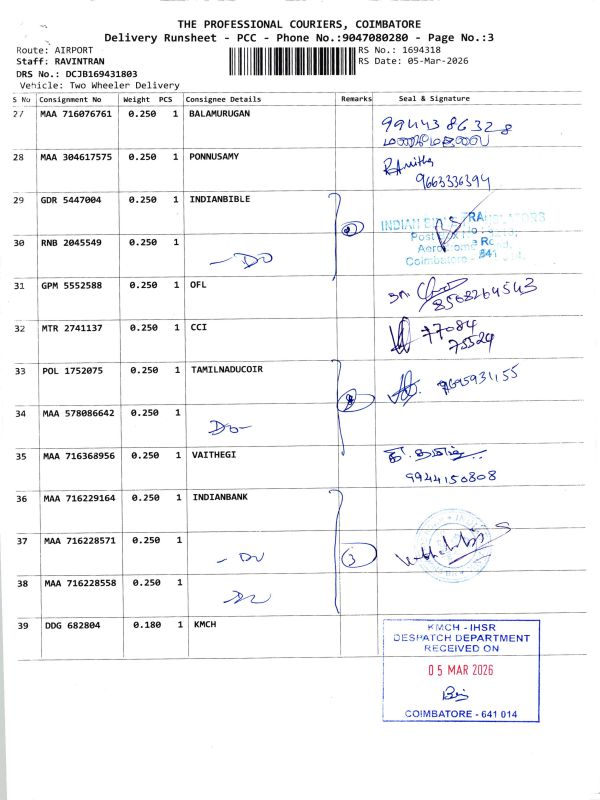 THE PROFESSIONAL COURIERS, COIMBATORE
Delivery Runsheet - PCC - Phone No.:9047080280 - Page No.:3
Route: AIRPORT RS No.: 1694318
Staff: RAVINTRAN RS Date: 05-Mar-2026
DRS No.: DCJB169431803
Vehicle: Two Wheeler Delivery
S No Consignment No Weight PCS Consignee Details Remarks Seal & Signature
27 MAA 716076761 0.250 1 BALAMURUGAN
28 MAA 304617575 0.250 1 PONNUSAMY
9663336394
29 GDR 5447004 0.250 1 INDIANBIBLE
30 RNB 2045549 0.250 1
- Do
31 GPM 5552588 0.250 1 OFL
8508264543
32 MTR 2741137 0.250 1 CCI
77084
75524
33 POL 1752075 0.250 1 TAMILNADUCOIR
34 MAA 578086642 0.250 1
Do-
35 MAA 716368956 0.250 1 VAITHEGI
9944150808
36 MAA 716229164 0.250 1 INDIANBANK
37 MAA 716228571 0.250 1
- Do 3
38 MAA 716228558 0.250 1
Do
39 DDG 682804 0.180 1 KMCH
KMCH - IHSR
DESPATCH DEPARTMENT
RECEIVED ON
05 MAR 2026
COIMBATORE - 641 014